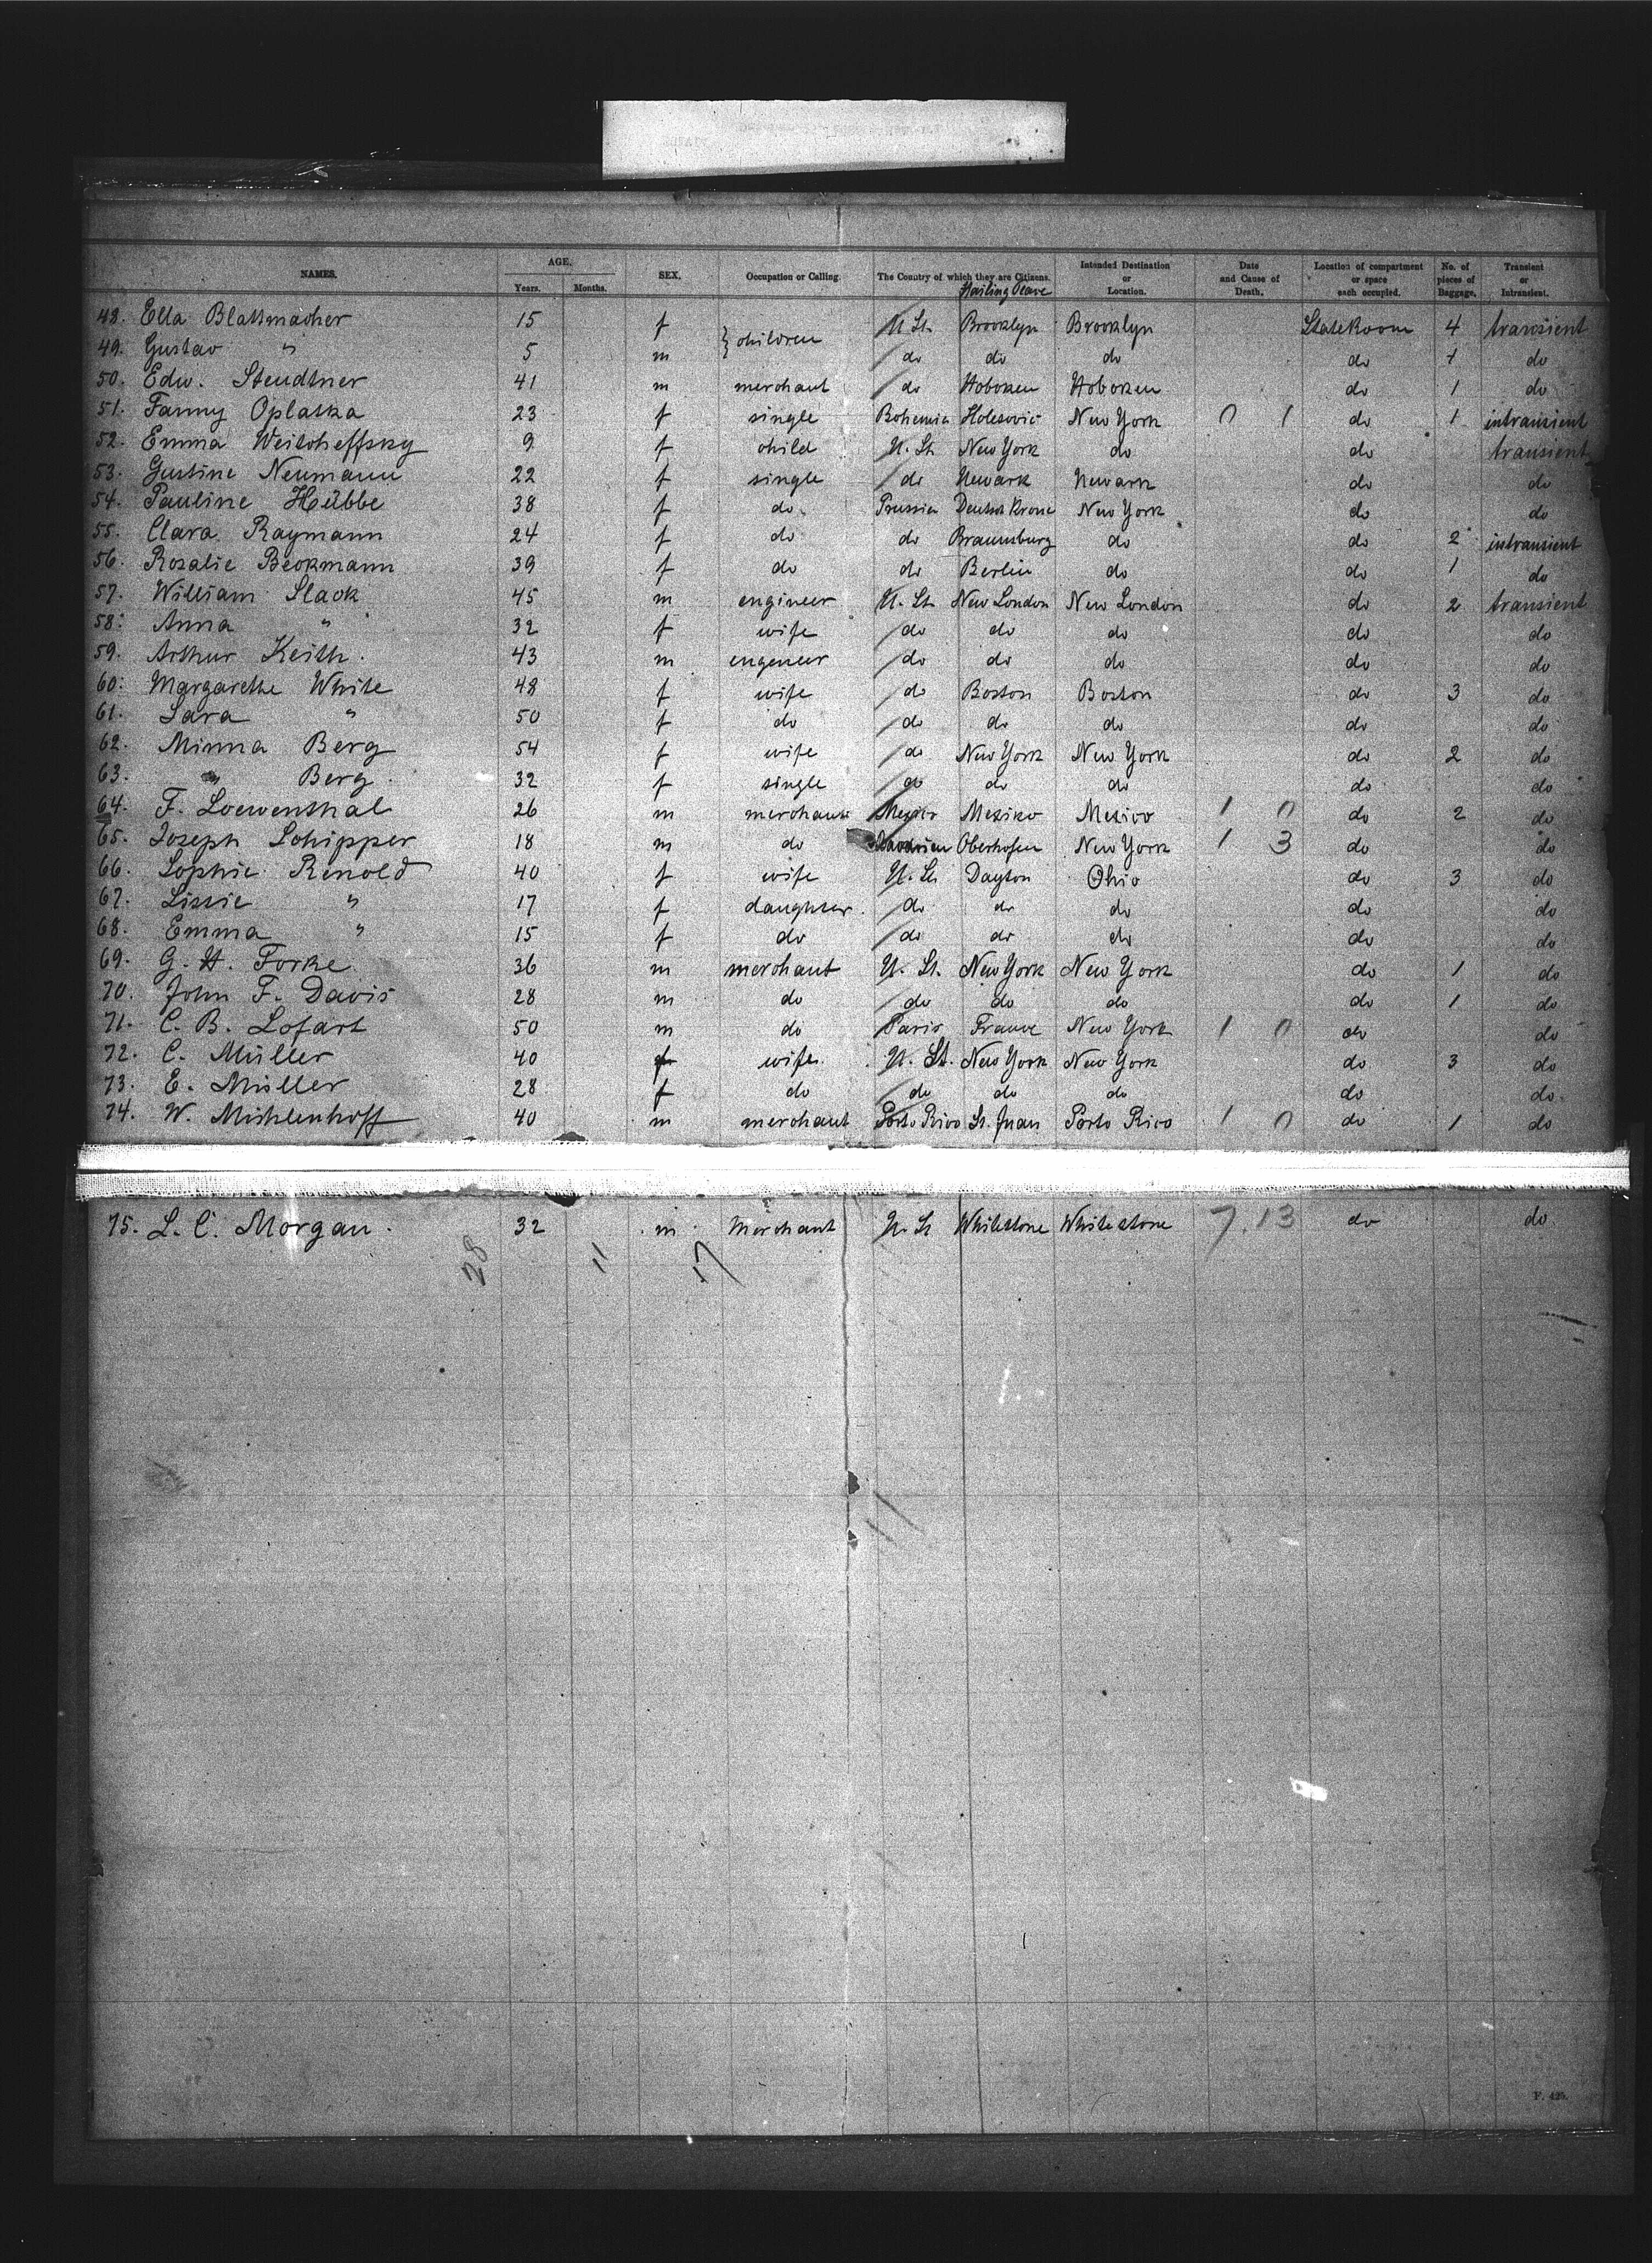 NAMES. AGE. Years. Months. SEX. Occupation or Calling. The Country of which they are Citizens. Hailing Place Intended Destination or Location. Date and Cause of Death. Location of compartment or space each occupied. No. of pieces of Baggage. Transient or Intransient.
48. Ella Blattmacher 15 f } children U. St. Brooklyn Brooklyn State Room 4 transient
49. Gustav " 5 m do do do do 1 do
50. Edw. Steudtner 41 m merchant do Hoboken Hoboken do 1 do
51. Fanny Oplatka 23 f single Bohemia Holesovic New York 0 1 do 1 intransient
52. Emma 9 f child U. St. New York do do transient
53. Gustine Neumann 22 f single do Newark Newark do do
54. Pauline Hübbe 38 f do Prussia Deutsch Krone New York do do
55. Clara Raymann 24 f do do Braunsburg do do 2 intransient
56. Rosalie Beckmann 39 f do do Berlin do do 1 do
57. William Slack 45 m engineer U. St. New London New London do 2 transient
58. Anna " 32 f wife do do do do do
59. Arthur Keith. 43 m engeneer do do do do do
60. Margarethe White 48 f wife do Boston Boston do 3 do
61. Sara " 50 f do do do do do do
62. Minna Berg 54 f wife do New York New York do 2 do
63. " Berg. 32 f single do do do do do
64. F. Loewenthal 26 m merchant Mexico Mexiko Mexico 1 0 do 2 do
65. Joseph Schipper 18 m do Oberhofen New York 1 3 do do
66. Sophie Renold 40 f wife U. St. Dayton Ohio do 3 do
67. Lissie " 17 f daughter. do do do do do
68. Emma " 15 f do do do do do do
69. G. H. Forke 36 m merchant U. St. New York New York do 1 do
70. John F. Davis 28 m do do do do do 1 do
71. C. B. Lofart 50 m do Paris France New York 1 0 do do
72. C. Müller 40 f wife. U. St. New York New York do 3 do
73. E. Müller 28 f do do do do do do.
74. W. Mühlenhoff 40 m merchant Porto Rico St. Juan Porto Rico 1 0 do 1 do
75. L. C. Morgan. 32 m Merchant U. St Whitestone Whitestone 7. 13 do do
28 11 17
11
F. 425.